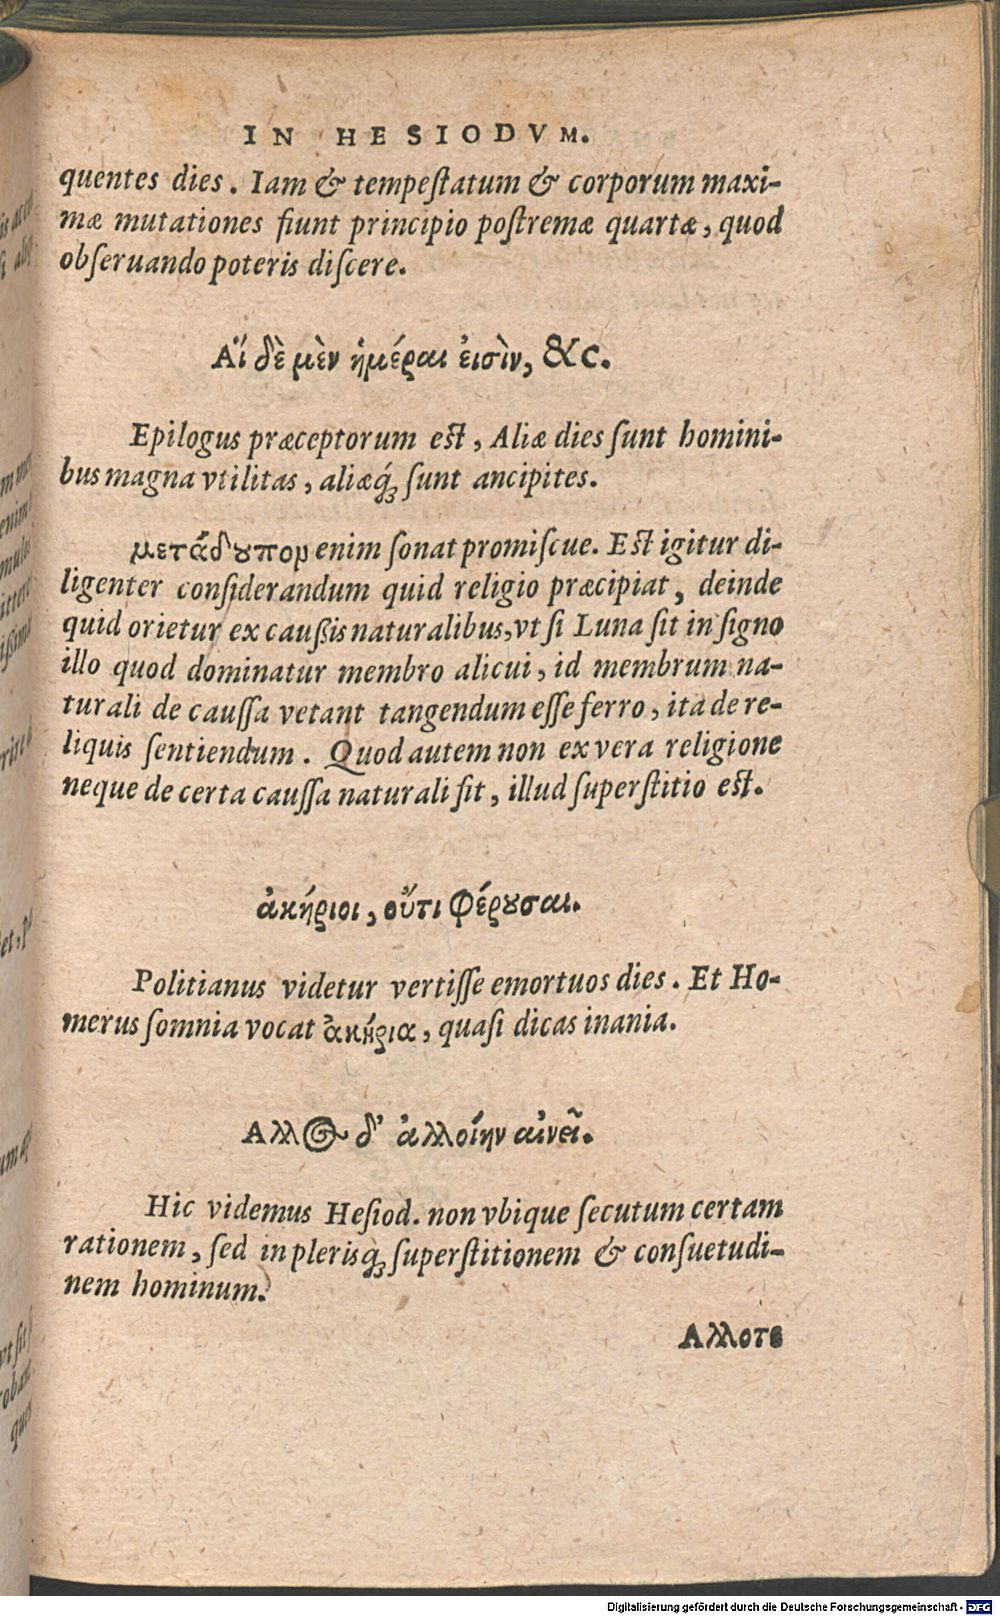 IN HESIODVM.
quentes dies. Iam & tempeſtatum & corporum maxi-
mæ mutationes fiunt principio poſtremæ quartæ, quod
obſeruando poteris diſcere.
Αἵ δὲ μὲν ἡμέραι ἐισὶν, &c.
Epilogus præceptorum eſt, Aliæ dies ſunt homini-
bus magna vtilitas, aliæq́; ſunt ancipites.
μετάδουπορ enim ſonat promiſcue. Eſt igitur di-
ligenter conſiderandum quid religio præcipiat, deinde
quid orietur ex cauſsis naturalibus, vt ſi Luna ſit in ſigno
illo quod dominatur membro alicui, id membrum na-
turali de cauſſa vetant tangendum eſſe ferro, ita de re-
liquis ſentiendum. Quod autem non ex vera religione
neque de certa cauſſa naturali fit, illud ſuperſtitio eſt.
ἀκήριοι, οὔτι φέρουσαι.
Politianus videtur vertiſſe emortuos dies. Et Ho-
merus ſomnia vocat ἀκήρια, quaſi dicas inania.
Αλλος δ' ἀλλοίην αἰνεῖ.
Hic videmus Heſiod. non vbique ſecutum certam
rationem, ſed in plerisq́; ſuperſtitionem & conſuetudi-
nem hominum.
Αλλοτε
Digitalisierung gefördert durch die Deutsche Forschungsgemeinschaft - DFG